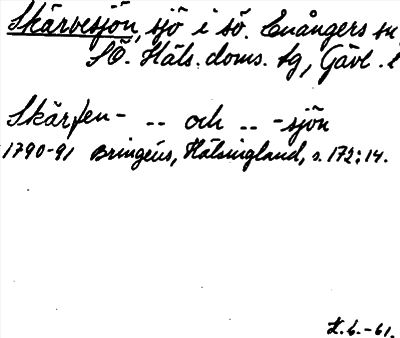 Skärvesjön, sjö i sö. Enångers sn
SÖ. Häls. doms. tg, Gävl. l
Skärfen- -- och -- -sjön
1790-91 Bringéus, Hälsingland, s. 172; 14.
H. b. -61.